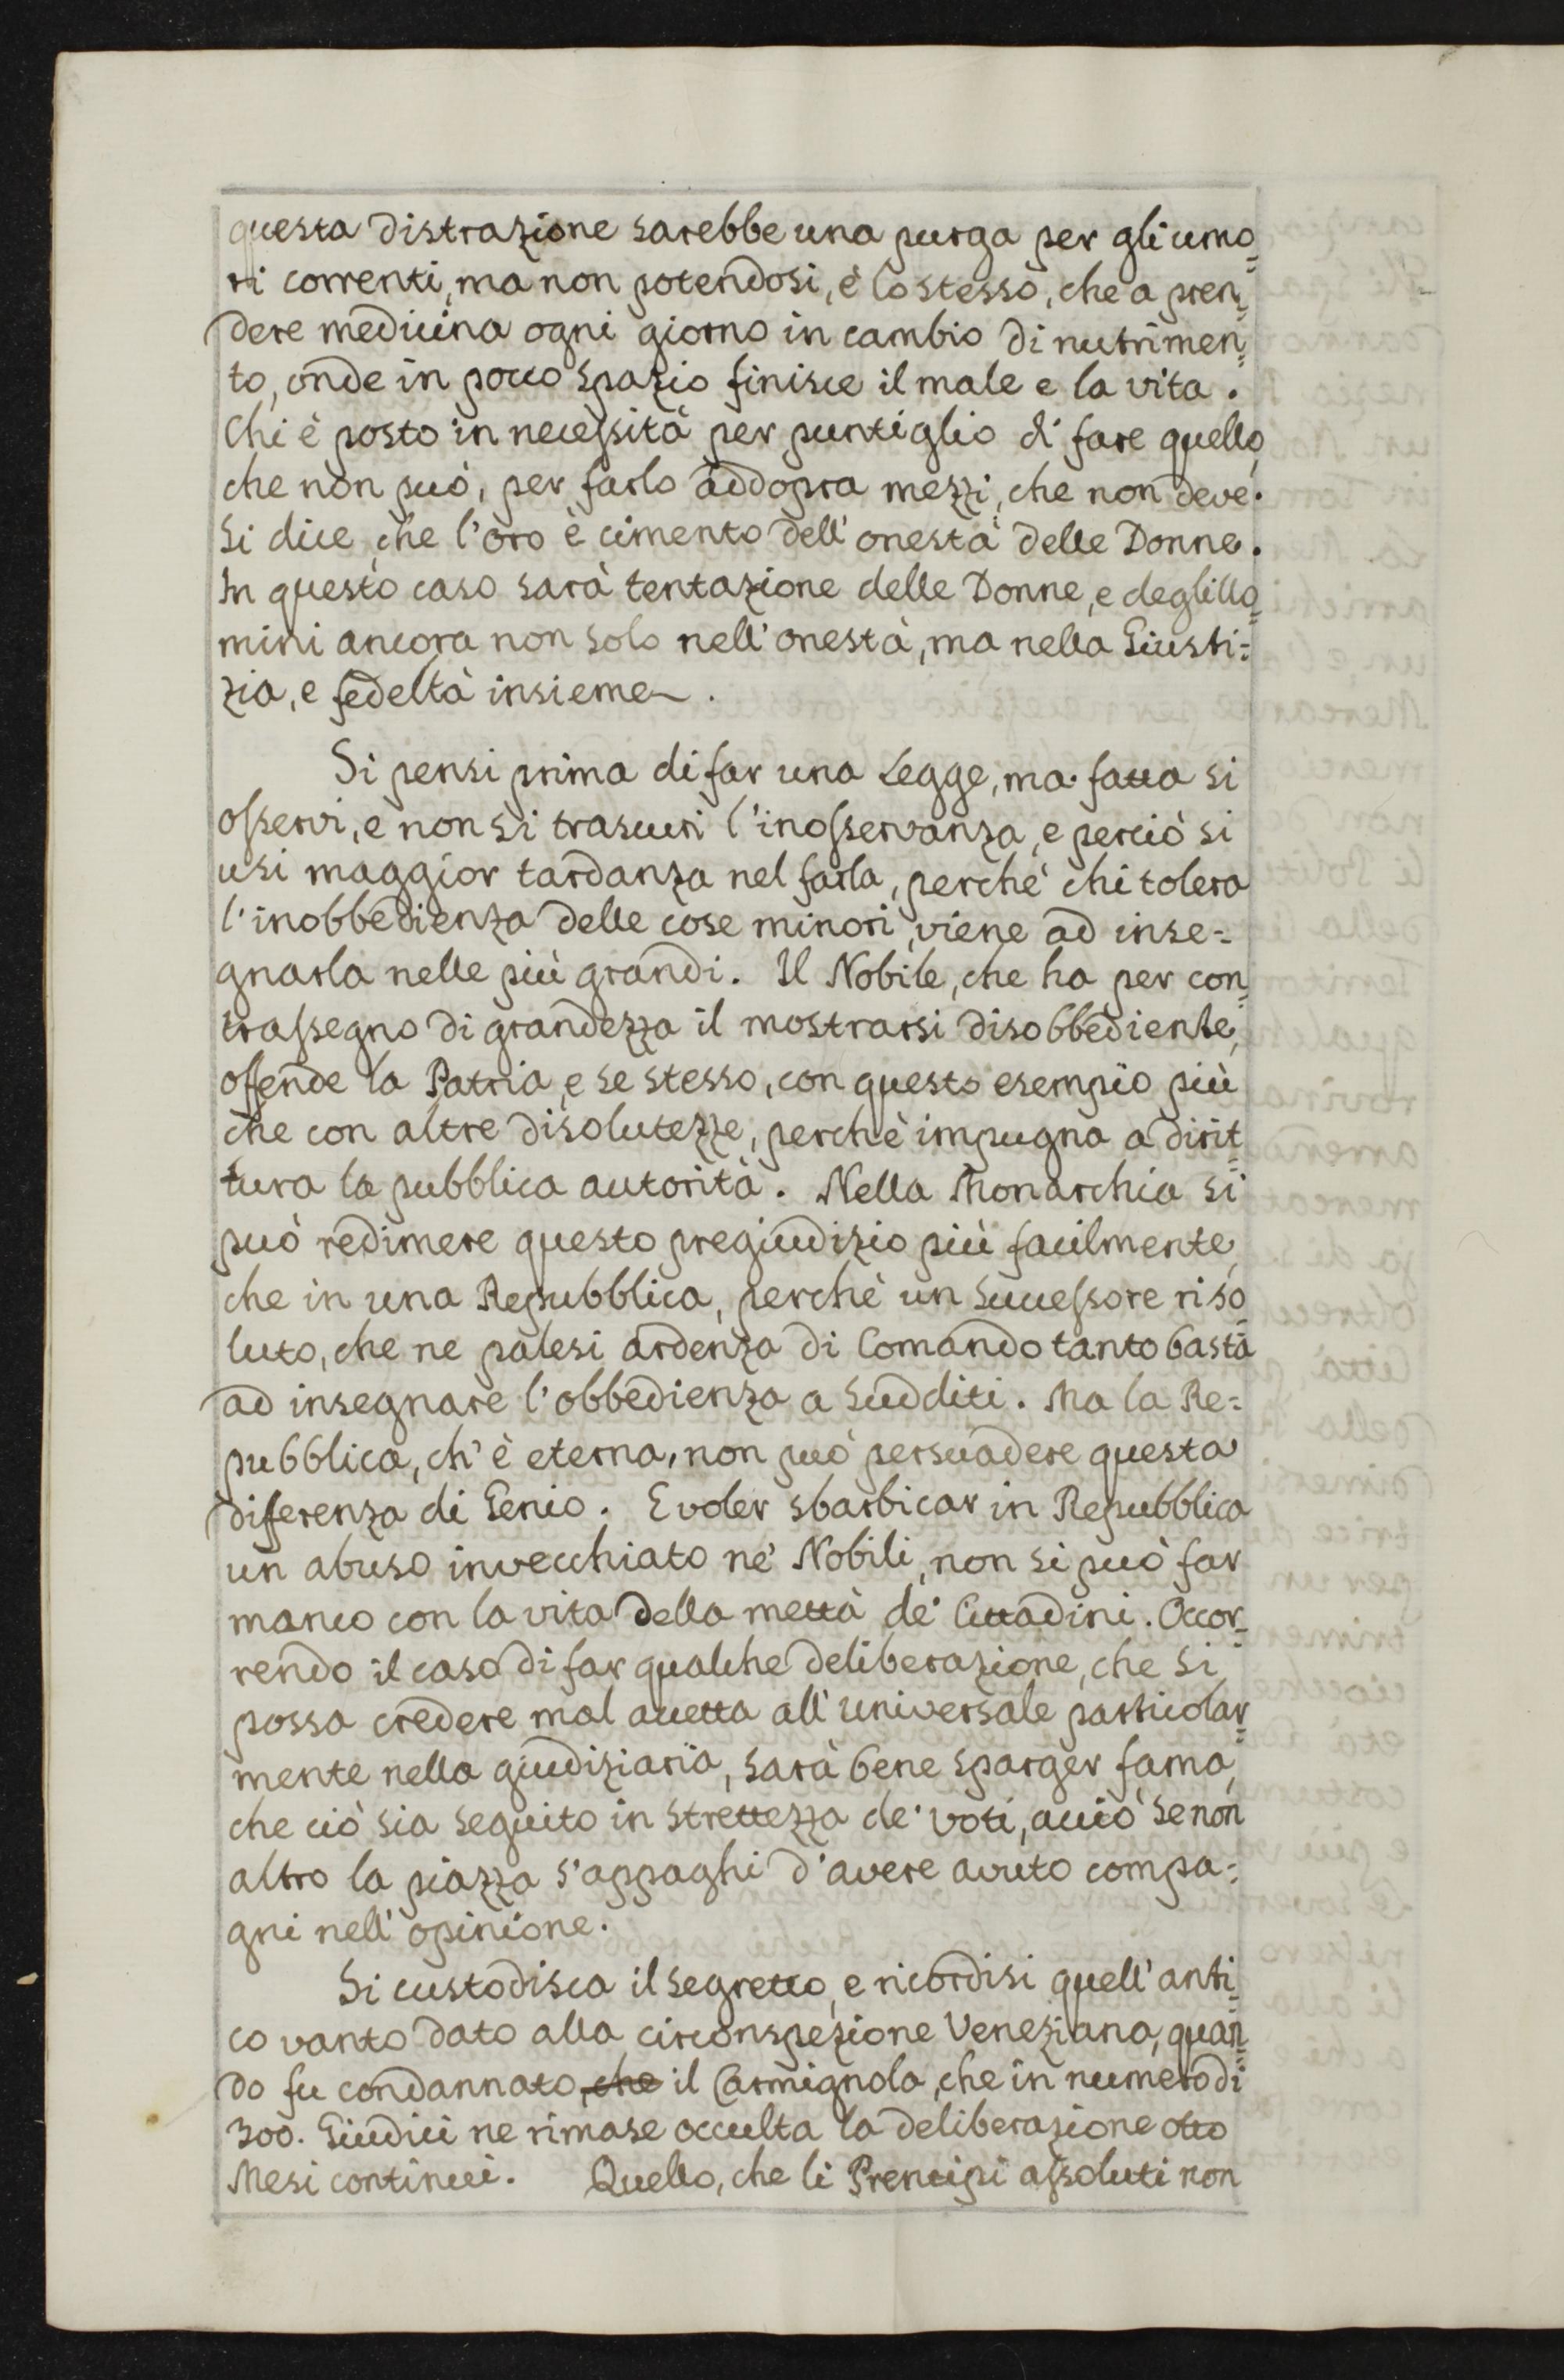 questa distrazione sarebbe una purga per gli umo=
ri correnti, ma non potendosi, è lo stesso, che a pren=
dere medicina ogni giorno in cambio di nutrimen=
to, onde in pocco spazio finisce il male e la vita.
Chi è posto in necessità per puntiglio di fare quello,
che non può, per farlo addopra mezzi, che non deve.
Si dice, che l'oro è cimento dell'onestà delle Donne.
In questo caso sarà tentazione delle Donne, e degl'Uo=
mini ancora non solo nell'onestà, ma nella Giusti=
zia, e fedeltà insieme.
Si pensi prima di far una Legge, ma fatta si
osservi, e non si trascuri l'inosservanza, e perciò si
usi maggior tardanza nel farla, perchè chi tolera
l'inobbedienza delle cose minori, viene ad inse=
gnarla nelle più grandi. Il Nobile, che ha per con=
trassegno di grandezza il mostrarsi disobbediente,
offende la Patria, e se stesso, con questo esempio più
che con altre disolutezze, perchè impugna a dirit=
tura la pubblica autorità. Nella Monarchia si
può redimere questo pregiudizio più facilmente,
che in una Repubblica, perchè un Successore riso=
luto, che ne palesi ardenza di Comando tanto basta
ad insegnare l'obbedienza a Sudditi. Ma la Re=
pubblica, ch'è eterna, non può persuadere questa
diferenza di Genio. E voler sbarbicar in Repubblica
un abuso invecchiato ne' Nobili, non si può far
manco con la vita della mettà de' Cittadini. Occor=
rendo il caso di far qualche deliberazione, che si
possa credere mal accetta all'universale particolar=
mente nella giudiziaria, sarà bene sparger fama,
che ciò sia seguito in strettezza de' voti, acciò se non
altro la piazza s'appaghi d'avere avuto compa=
gni nell'opinione.
Si custodisca il segretto, e ricordisi quell'anti=
co vanto dato alla circonspezione Veneziana, quan=
do fu condannato, che il Carmignola, che in numero di
300. Giudici ne rimase occulta la deliberazione otto
Mesi continui. Quello, che li Prencipi assoluti non